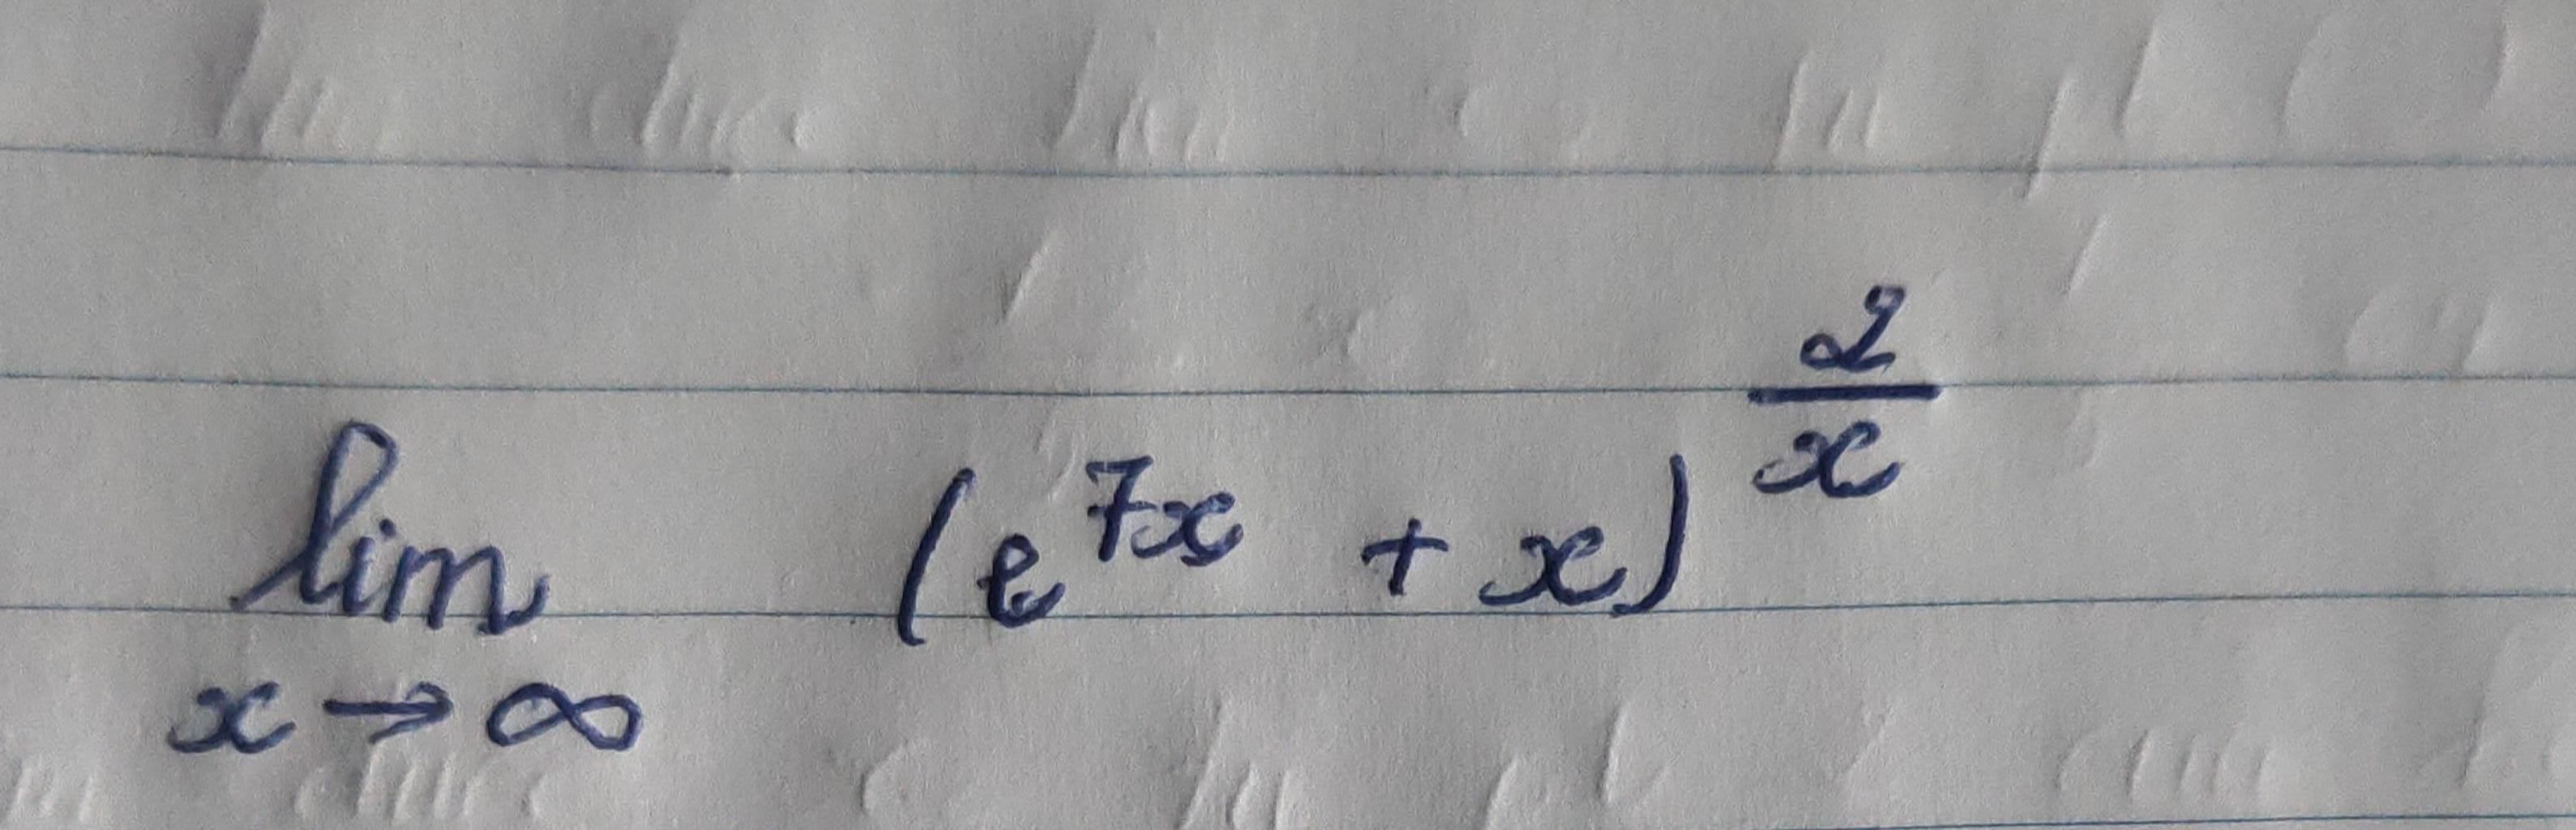 lim (e^{7x} + x)^{\frac{2}{x}}
x → ∞